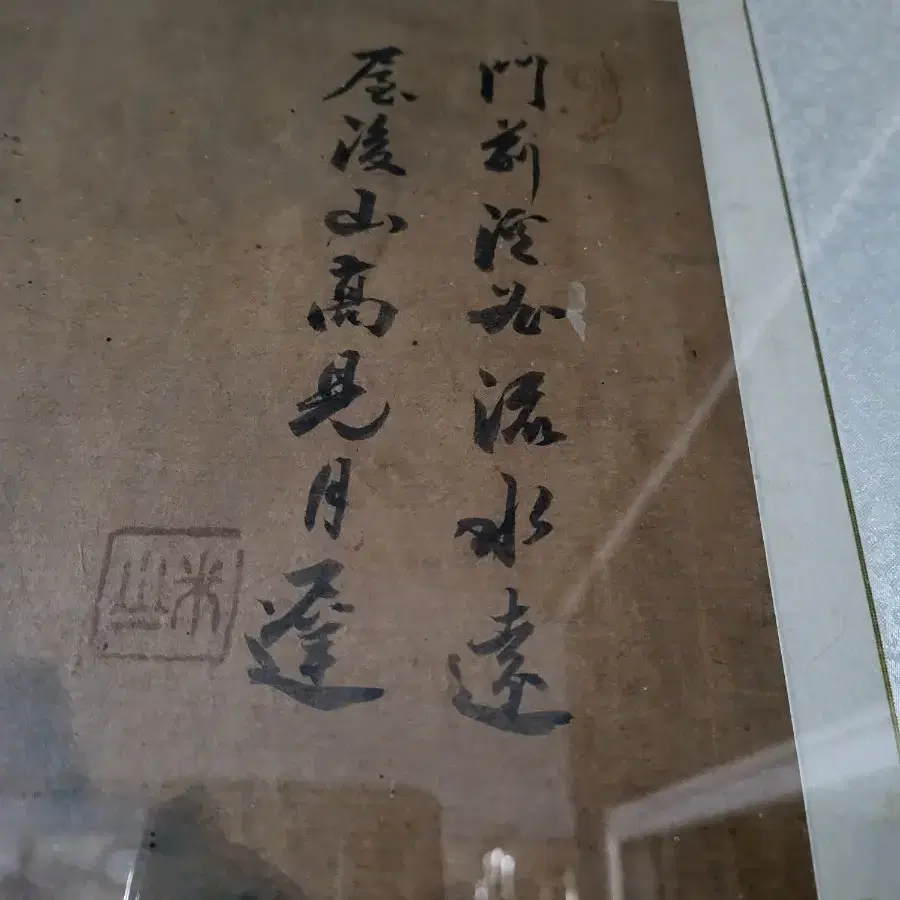 門前流水遠
屋後山高見月遲
米